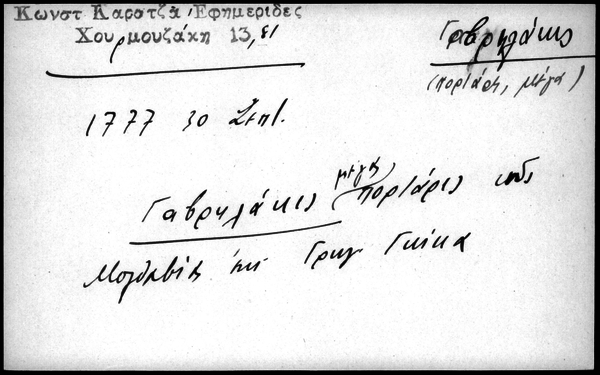 Κωνστ Καρατζᾶ Ἐφημερίδες
Χουρμουζάκη 13, 81
Γαβριλάκις
(πορτάρις, μέγα)
1777 30 Σεπτ.
μέγας
Γαβριλάκις πορτάρις τῆς
Μολδαβίας ἐπὶ Γρηγ Γκίκα